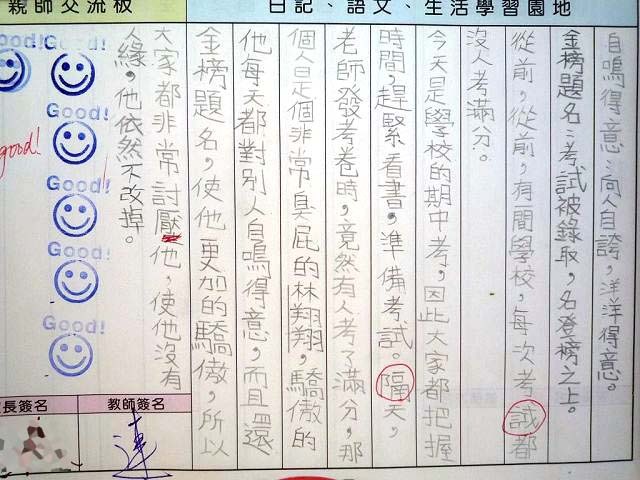 日記、語文、生活學習園地
自鳴得意：向人自誇，洋洋得意。
金榜題名：考試被錄取，名登榜之上。
從前，從前，有間學校，每次考試都
沒人考滿分。
今天是學校的期中考，因此大家都把握
時間，趕緊看書，準備考試。隔天，
老師發考卷時，竟然有人考了滿分，那
個人是個非常臭屁的林翔翔，驕傲的
他每天都對別人自鳴得意，而且還
金榜題名，使他更加的驕傲，所以
大家都非常討壓他，使他沒有
人緣，他依然不改掉。
親師交流板
Good!
Good!
Good!
Good!
Good!
good!
教師簽名
連
長簽名